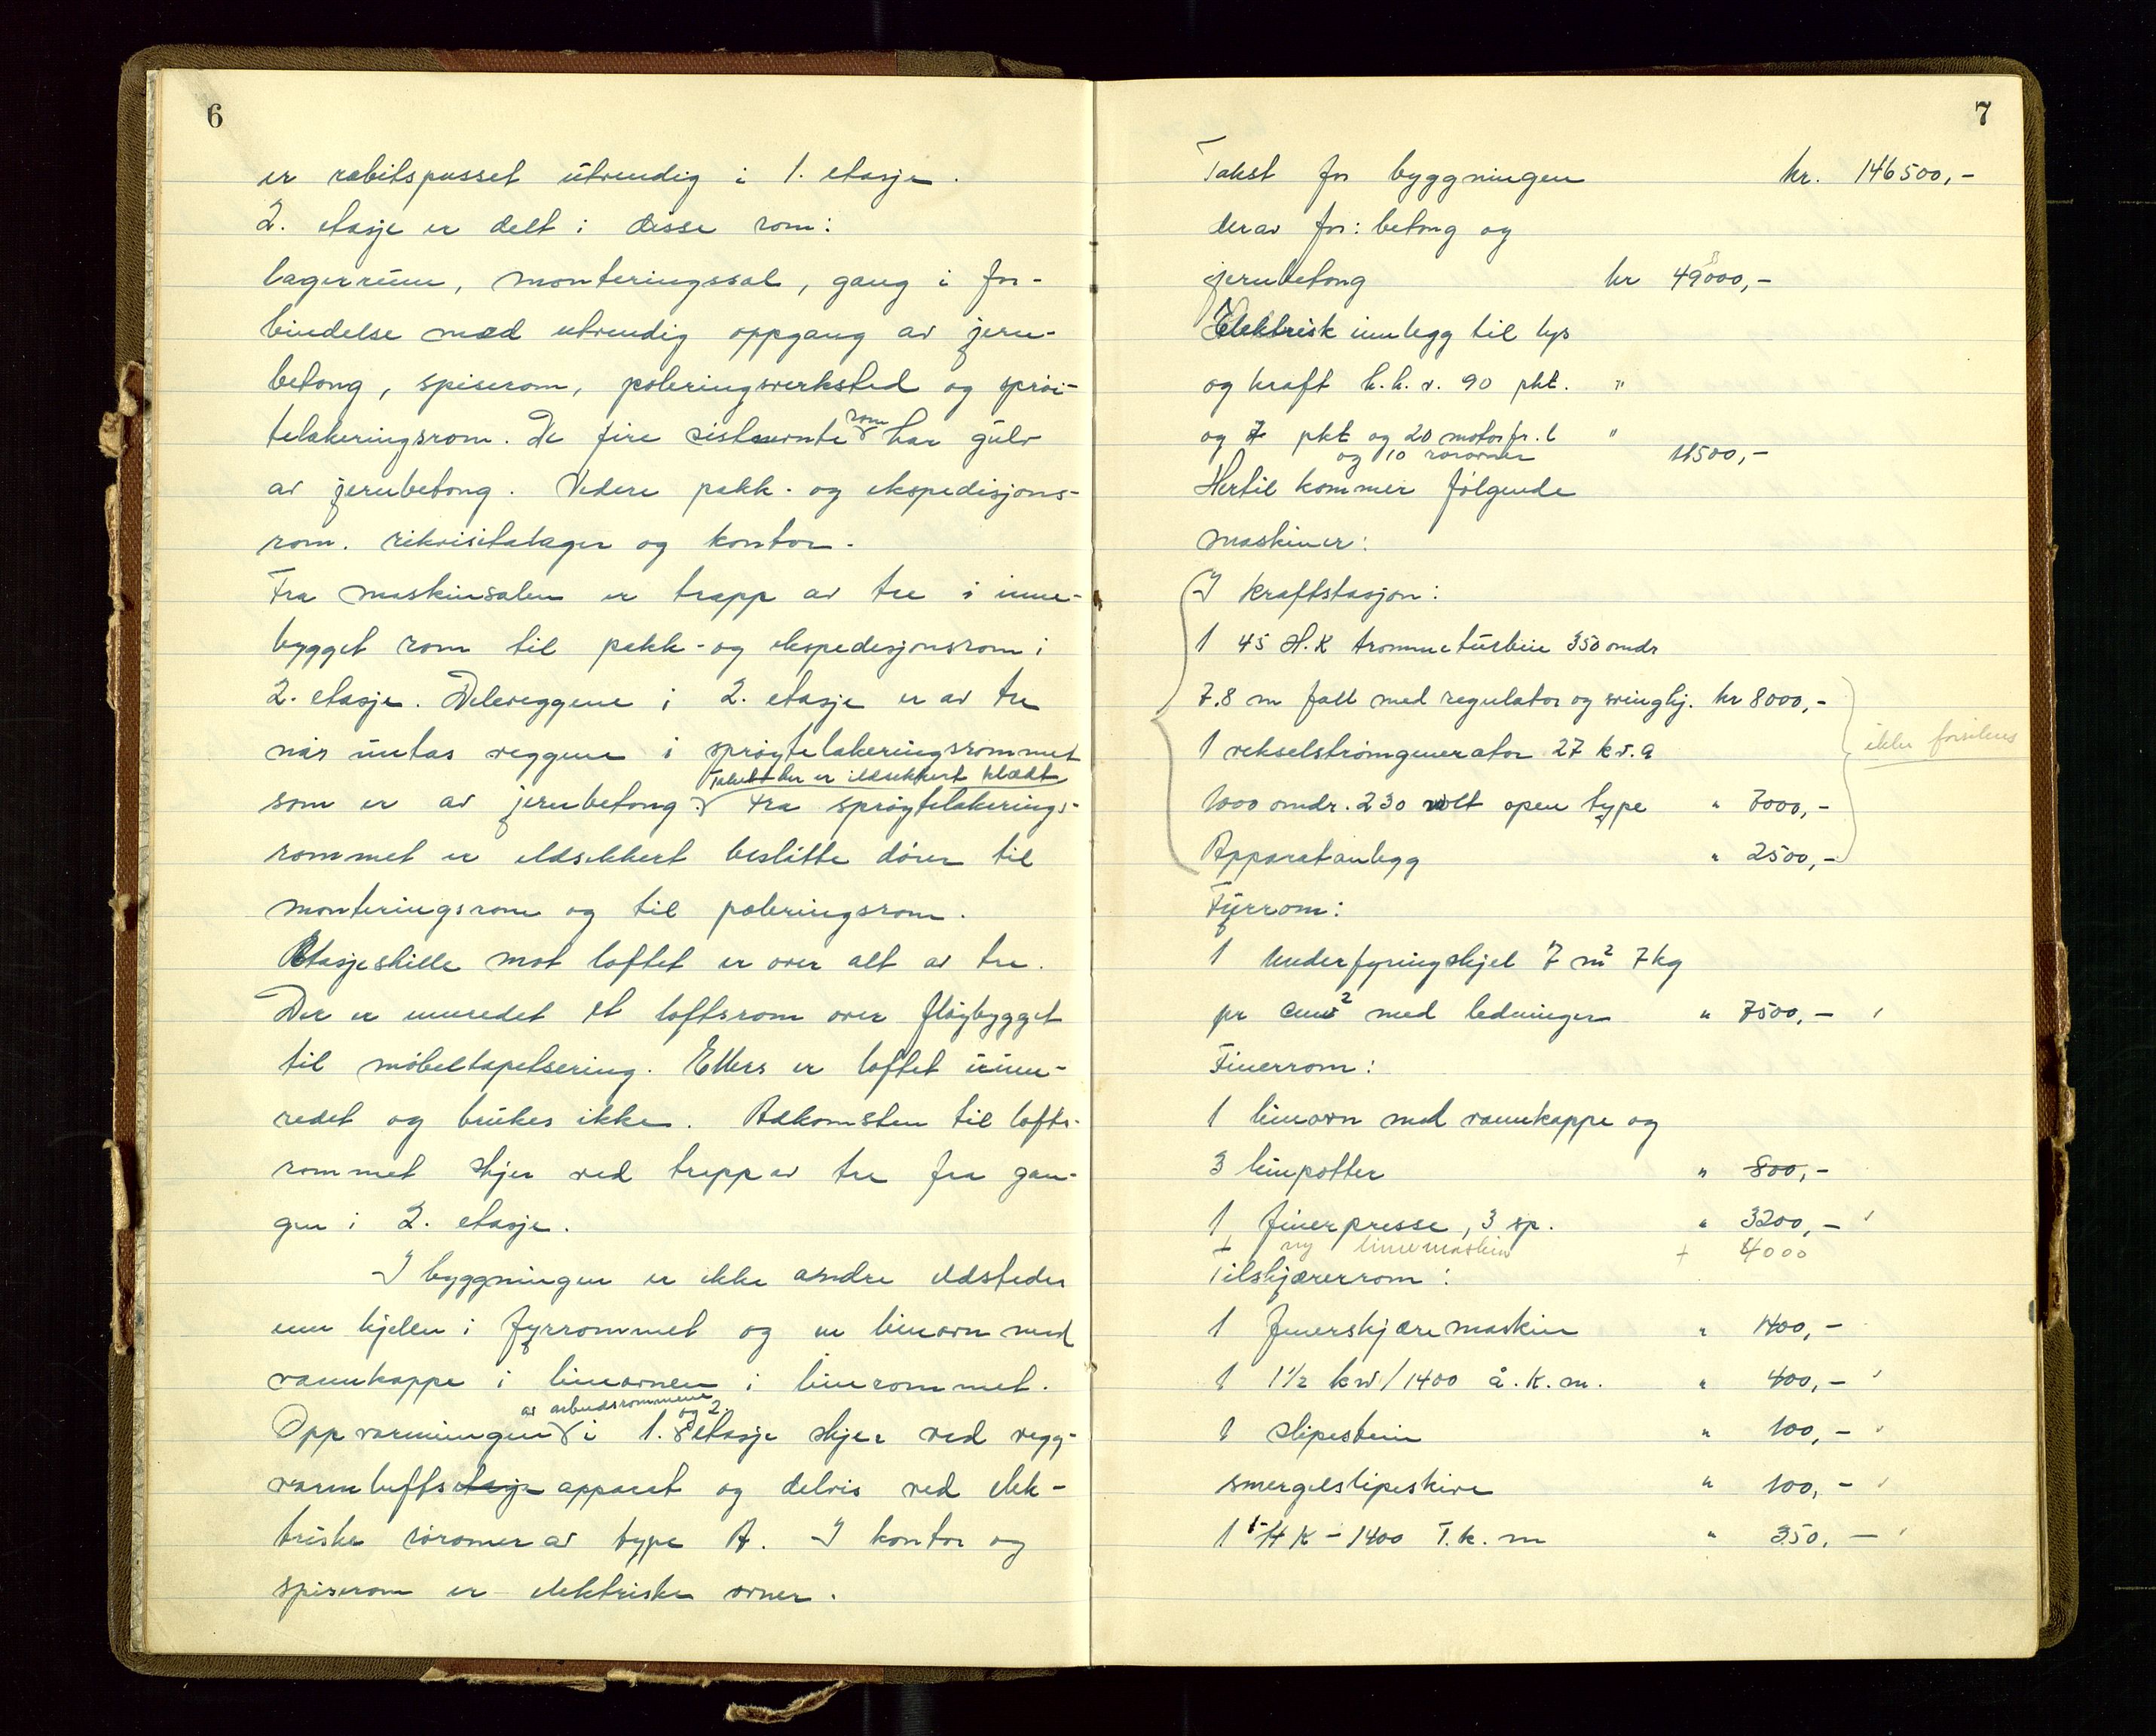 6
er rabitspusset utvendig i 1. etasje.
2. etasje er delt i disse rom:
lagerrum, monteringssal, gang i for-
bindelse med utvendig oppgang av jern-
betong, spiserom, poleringsverksted og sprøi-
telakeringsrom. De fire sistnevnte rom har gulv
av jernbetong. Videre pakk- og ekspedisjons-
rom. rekvisitalager og kontor.
Fra maskinsalen er trapp av tre i inne-
bygget rom til pakk- og ekspedisjonsrom i
2. etasje. Deleveggene i 2. etasje er av tre
når untas veggene i sprøytelakeringsrommet
som er av jernbetong. Taket her er ildsikkert kledt Fra sprøytelakerings-
rommet er ildsikkert beslåtte dører til
monteringsrom og til poleringsrom.
Etasjeskille mot loftet er over alt av tre.
Der er innredet et loftsrom over fløybygget
til møbeltapetsering. Ellers er loftet uinn-
redet og brukes ikke. Adkomsten til lofts-
rommet skjer ved trapp av tre fra gan-
gen i 2. etasje.
I byggningen er ikke andre ildsteder
enn kjelen i fyrrommet og en limovn med
rannkappe i limovnen i limrommet.
Oppvarmningen av arbeidsrommene i 1. og 2. etasje skjer ved vegg-
varmluftsetasje apparat og delvis ved elek-
triske rørovner av type A. I kontor og
spiserom er elektriske ovner.
7
Takst for byggningen kr. 146500,-
derav for: betong og
jernbetong kr 49000,-
Elektrisk innlegg til lys
og kraft h.h.v. 90 pkt. "
og 7 pkt og 20 motorfr.l "
og 10 rørovner 11500,-
Hertil kommer følgende
maskiner:
I kraftstasjon:
1 45 H.K trommeturbin 350 omdr
7.8 m fall med regulator og svinghj. kr 8000,-
1 vekselstrømgenerator 27 k.v.a
ikke forsikres
1000 omdr. 230 volt open type " 7000,-
Apparatanlegg " 2500,-
Fyrrom:
1 Underfyringskjel 7 m² 7 kg
pr cm² med ledninger " 7500,-
Finerrom:
1 limovn med rannkappe og
3 limpotter " 800,-
1 finerpresse, 3 sp. " 3200,-
+ ny limemaskin + 4000
Tilskjærerrom:
1 finerskjæremaskin " 1400,-
1 1½ kw/1400 å.K.m. " 400,-
1 slipestein " 100,-
smergelslipeskive " 100,-
1 1 H K - 1400 T.k.m " 350,-